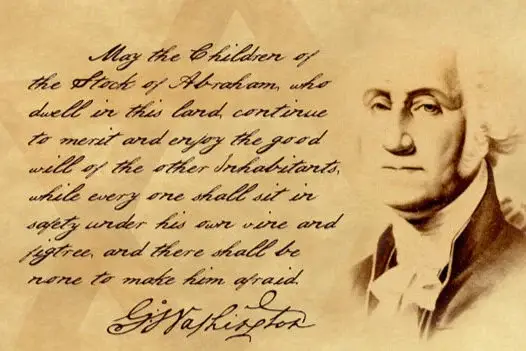 May the Children of
the Stock of Abraham, who
dwell in this land, continue
to merit and enjoy the good
will of the other Inhabitants,
while every one shall sit in
safety under his own vine and
figtree, and there shall be
none to make him afraid.
G. Washington